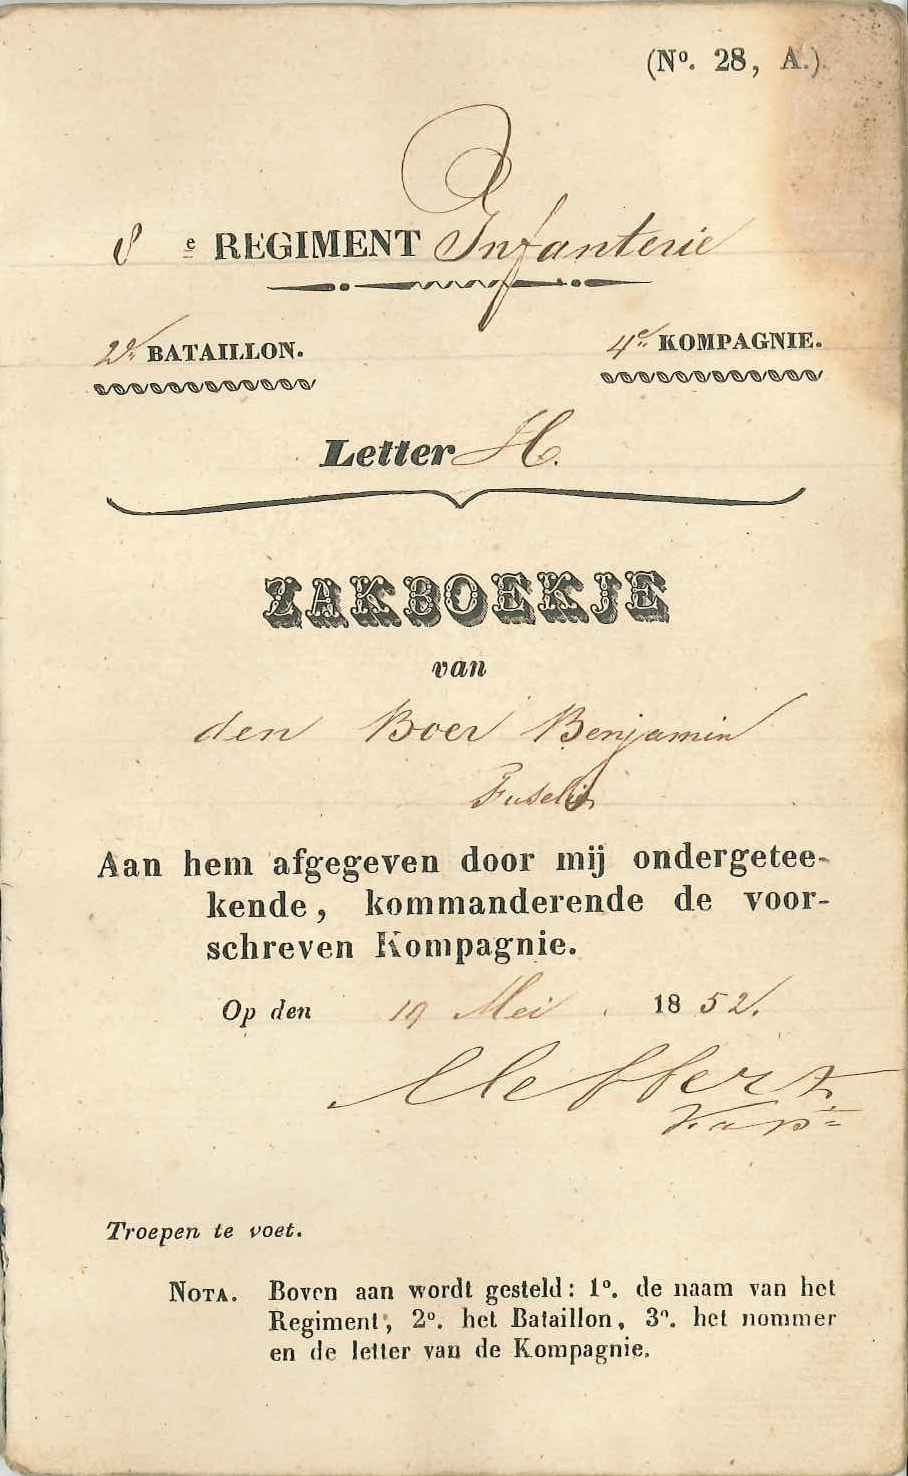 (Nº. 28, A.)
8 e REGIMENT Infanterie
2e BATAILLON. 4e KOMPAGNIE.
Letter H.
ZAKBOEKJE
van
den Boer Benjamin
Fuselier
Aan hem afgegeven door mij ondergetee-
kende, kommanderende de voor-
schreven Kompagnie.
Op den 19 Mei 1852.
Kapn
Troepen te voet.
NOTA. Boven aan wordt gesteld: 1º. de naam van het
Regiment, 2º. het Bataillon, 3º. het nommer
en de letter van de Kompagnie.